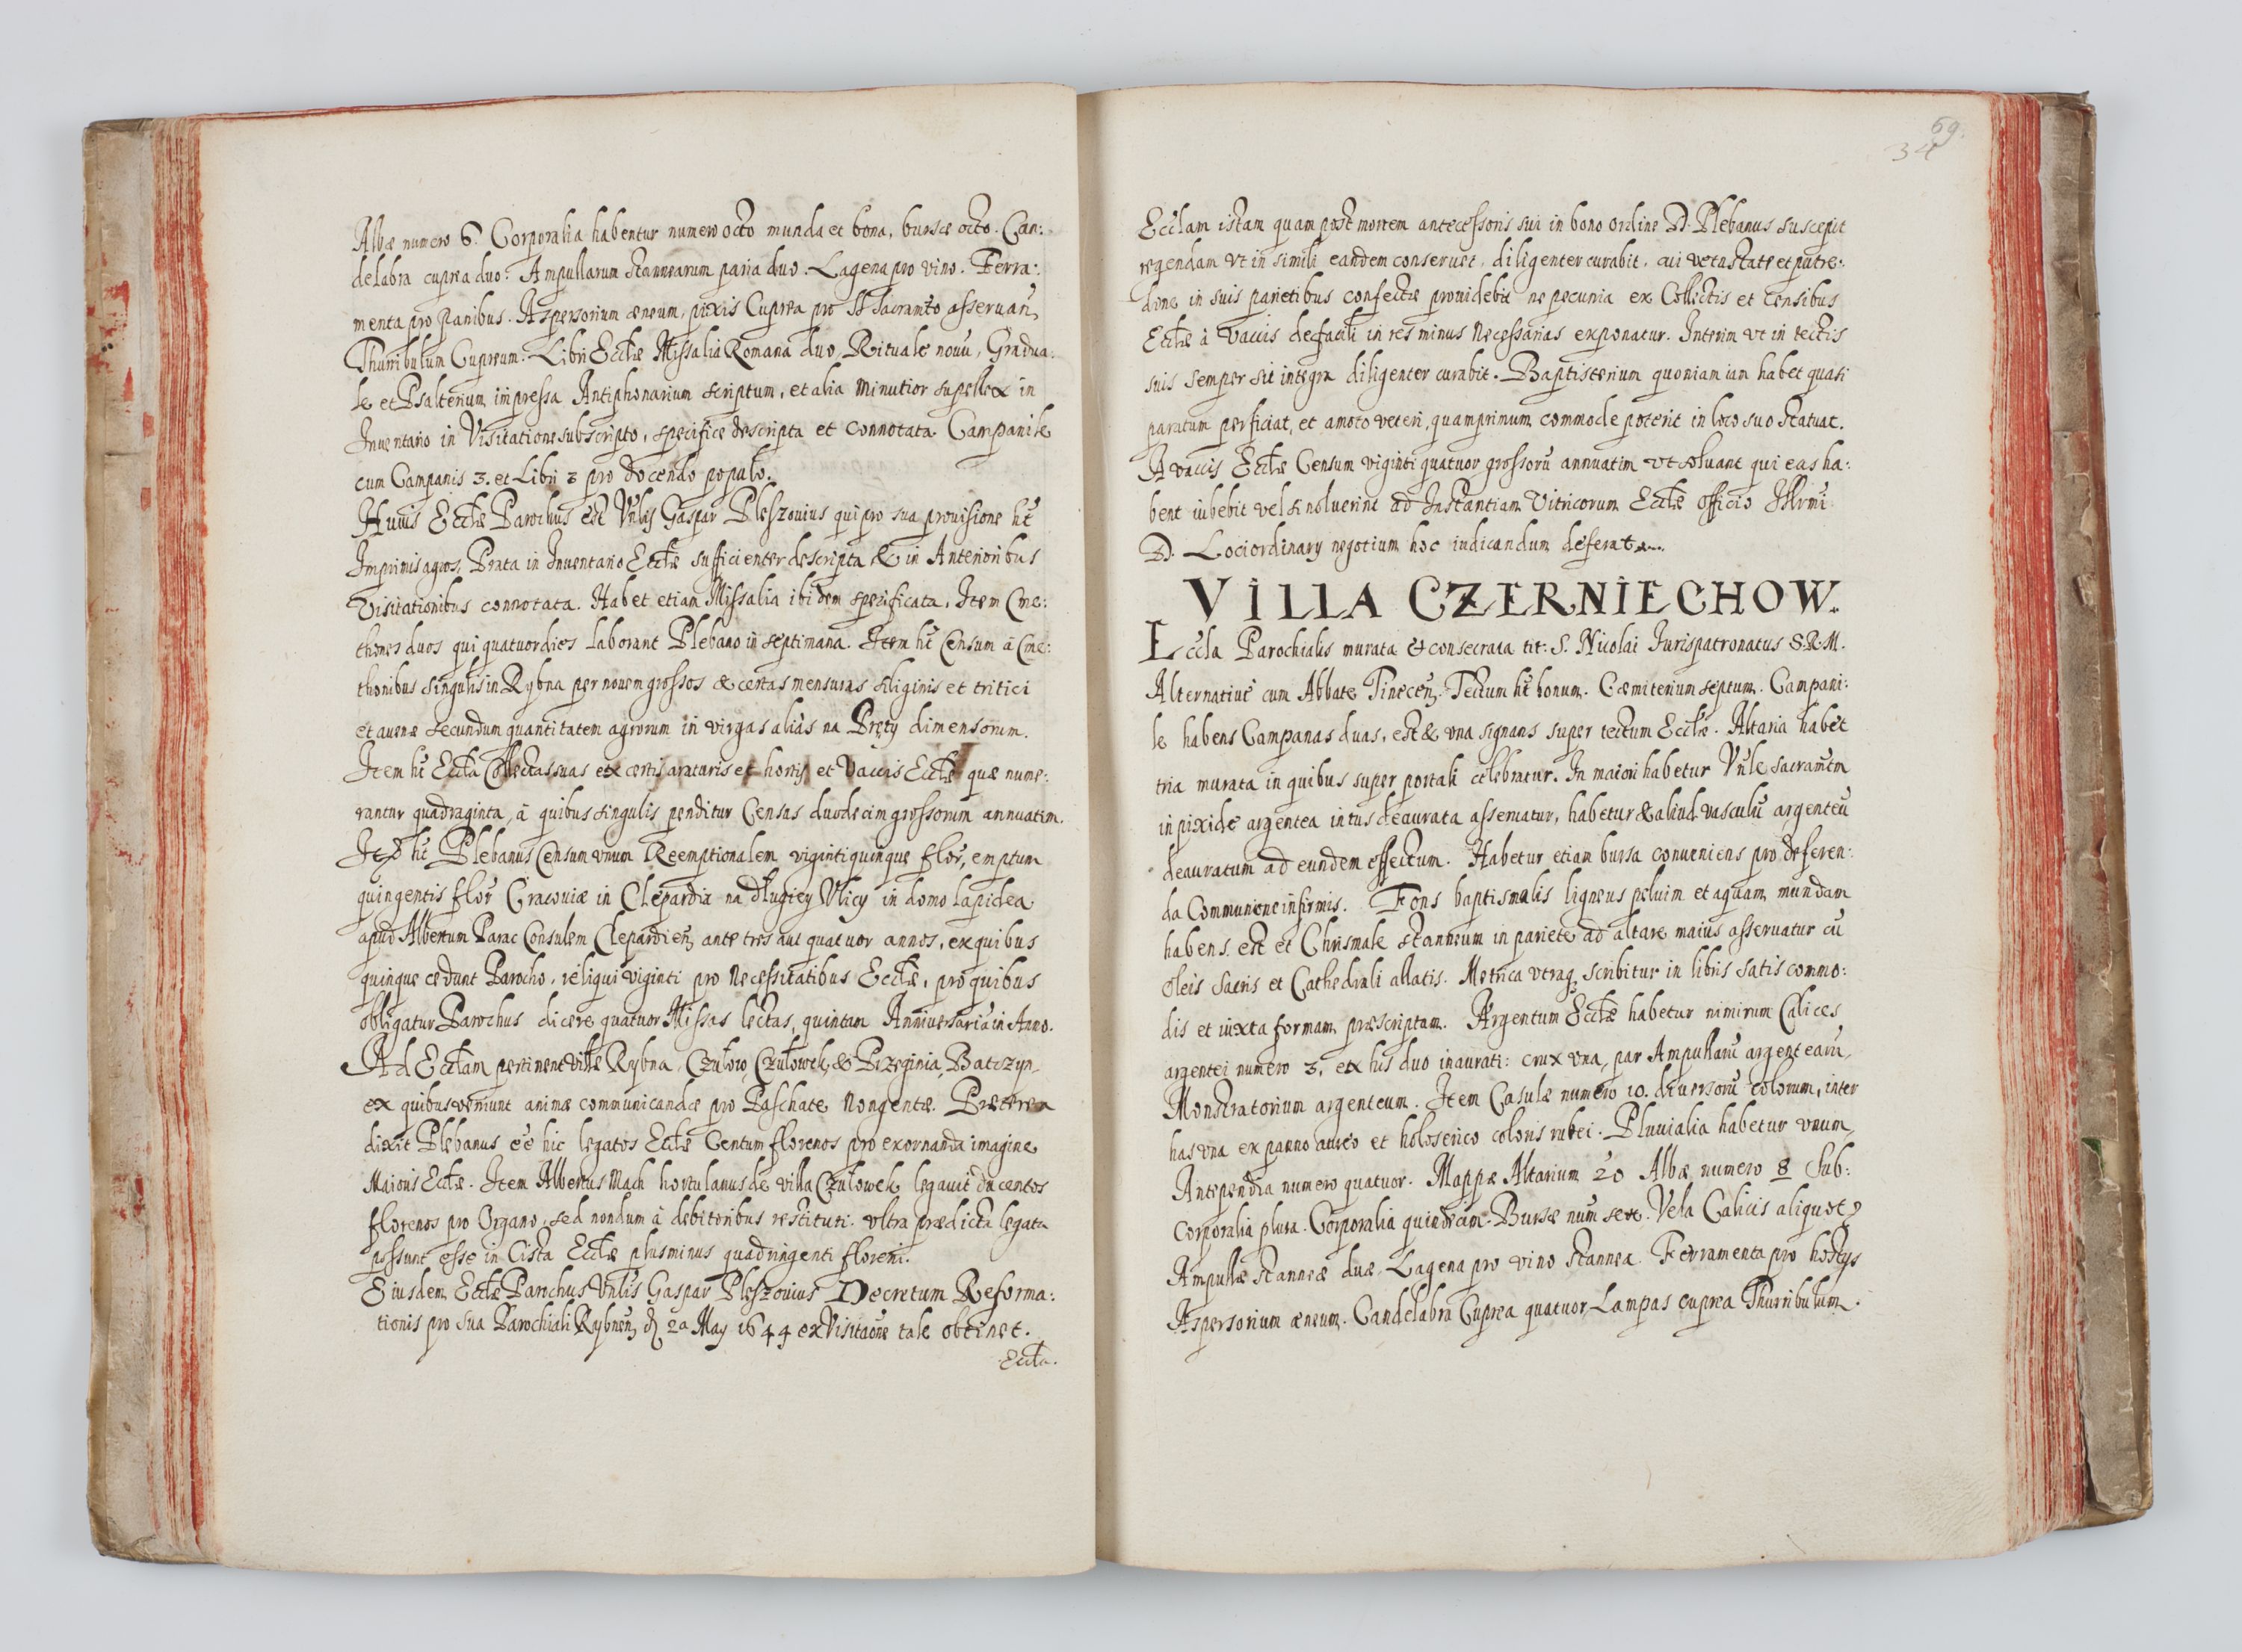 Albæ numero 6. Corporalia habentur numero octo munda et bona, bursæ octo. Can:
delabra cuprea duo: Ampullarum stannearum paria duo. Lagena pro vino. Ferra:
menta pro panibus. Aspersorium æneum, pixis Cuprea pro SS Sacramto asseruan,
Thuribulum Cupreum. Libri Ecclæ Missalia Romana duo, Rituale nouū, Gradua:
le et Psalterium impressa Antiphonarium scriptum, et alia minutior supellex in
Inuentario in Visitatione subscripto, specifice descripta et connotata. Campanile
cum Campanis 3. et Libri 3 pro docendo populo.
Huius Ecclæ Parochus est Vnlis Gaspar Pleszouius qui pro sua prouisione ht
Imprimis agros, Prata in Inuentario Ecclæ sufficienter descripta & in Anterioribus
Visitationibus connotata. Habet etiam Missalia ibidem specificata. Item Cme:
thones duos qui quatuor dies laborant Plebano in septimana. Item ht Censum à Cme:
thonibus singulis in Rybna per nouem grossos & certas mensuras siliginis et tritici
et auenæ secundum quantitatem agrorum in virgas aliàs na Pręty dimensorum.
Item ht Eccla Collectas suas ex certis araturis et hortis et Vaccis Ecclæ quæ nume:
rantur quadraginta, à quibus singulis penditur Census duodecim grossorum annuatim.
ht Plebanus Censum vnum Reemptionalem viginti quinque flor, emptum
quingentis flor Cracouiæ in Clepardia na długiey Vlicy in domo lapidea
apud Albertum Parac Consulem Clepardien, ante tres aut quatuor annos, ex quibus
quinque cedunt Parocho, reliqui viginti pro Necessitatibus Ecclæ, pro quibus
obligatur Parochus dicere quatuor Missas lectas, quintam Anniuersaria in Anno.
Ad Ecclam pertinent villæ Rybna, Czułow, Czułowek, & Przeginia, Batczyn,
ex quibus veniunt animæ communicandæ pro Paschate Nongentæ. Præterea
dixit Plebanus eē hic legatos Ecclæ Centum florenos pro exornanda imagine
Maioris Ecclæ. Item Albertus Mach hortulanus de villa Czułowek legauit ducentos
florenos pro Organo, sed nondum à debitoribus restituti. vltra prædicta legata
possunt esse in Cista Ecclæ plus minus quadringenti floreni.
Eiusdem Ecclæ Parochus Vnlis Gaspar Pleszouius Decretum Reforma:
tionis pro sua Parochiali Rybnen, 2a May 1644 ex Visitaōne tale obtinet.
Eccla.
69.
34
Ecclam istam quam post mortem antecessoris sui in bono ordine D. Plebanus suscepit
regendam vt in simili eandem conseruet, diligenter curabit, cui vetustate et putre:
dine in suis parietibus confectæ prouidebit ne pecunia ex Collectis et Censibus
Ecclæ à Vaccis de facili in res minus Necessarias exponatur. Interim vt in tectis
suis semper sit integra diligenter curabit. Baptisterium quoniam iam habet quasi
paratum perficiat, et amoto veteri, quamprimum commode poterit in loco suo statuat.
A vaccis Ecclæ Censum viginti quatuor grossorū annuatim vt soluant qui eas ha:
bent iubebit vel si noluerint ad Instantiam Vitricorum Ecclæ officio Illrmi
D. Loci ordinary negotium hoc iudicandum deferat.
VILLA CZERNIECHOW.
Eccla Parochialis murata & consecrata tit: S. Nicolai Iurispatronatus S.R.M.
Alternatiue cum Abbate Tinecen. Tectum ht bonum. Cæmiterium septum. Campani:
le habens Campanas duas, est & vna signans super tectum Ecclæ. Altaria habet
tria murata in quibus super portali celebratur. In maiori habetur Vnle sacramtm
in pixide argentea intus deaurata asseruatur, habetur & aliud vasculū argenteū
deauratum ad eundem effectum. Habetur etiam bursa conueniens pro deferen:
da Communione infirmis. Fons baptismalis ligneus peluim et aquam mundam
habens. est et Chrismale stanneum in pariete ad altare maius asseruatur cū
oleis sacris et Cathedrali allatis. Metrica vtraq scribitur in libris satis commo:
dis et iuxta formam præscriptam. Argentum Ecclæ habetur nimirum Calices
argentei numero 3, ex his duo inaurati: crux vna, par Ampullarū argentearū,
Monstratorium argenteum. Item Casulæ numero 10. diuersorū colorum, inter
has vna ex panno aureo et holoserico coloris rubei. Pluuialia habetur vnum,
Antependia numero quatuor. Mappæ Altarium 20 Albæ numero 8 Sub:
corporalia plura. Corporalia quindecim. Bursæ num sex. Vela Calicis aliquot,
Ampullæ stanneæ duæ. Lagena pro vino stannea. Ferramenta pro hostys
Aspersorium æneum. Candelabra Cuprea quatuor, Lampas cuprea Thurribulum.